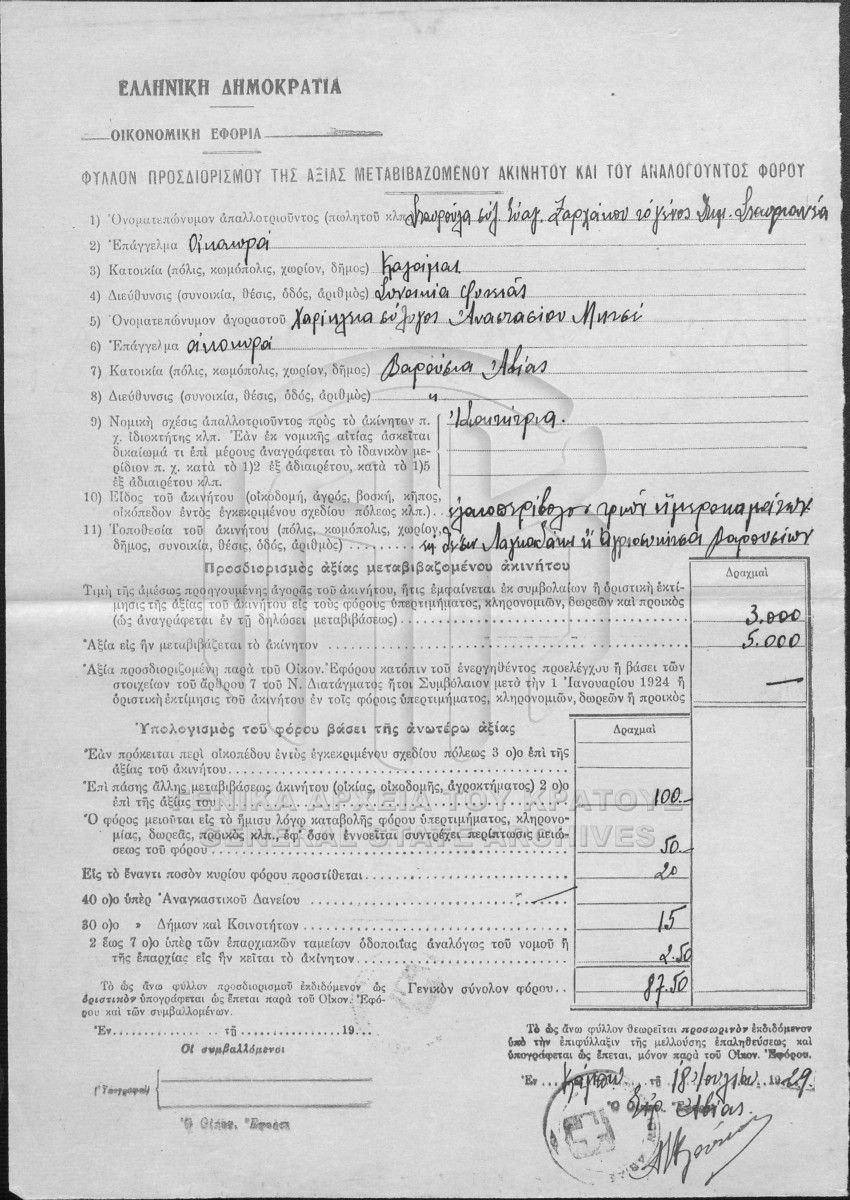 ΕΛΛΗΝΙΚΗ ΔΗΜΟΚΡΑΤΙΑ
ΟΙΚΟΝΟΜΙΚΗ ΕΦΟΡΙΑ
ΦΥΛΛΟΝ ΠΡΟΣΔΙΟΡΙΣΜΟΥ ΤΗΣ ΑΞΙΑΣ ΜΕΤΑΒΙΒΑΖΟΜΕΝΟΥ ΑΚΙΝΗΤΟΥ ΚΑΙ ΤΟΥ ΑΝΑΛΟΓΟΥΝΤΟΣ ΦΟΡΟΥ
1) Ὀνοματεπώνυμον ἀπαλλοτριοῦντος (πωλητοῦ κλπ. Σταυρούλα συζ. Εὐαγ. Ζαρχάκου τὸ γένος Δημ.
2) Ἐπάγγελμα Οἰκοκυρά
3) Κατοικία (πόλις, κωμόπολις, χωρίον, δῆμος) Καλάμαι
4) Διεύθυνσις (συνοικία, θέσις, ὁδός, ἀριθμὸς) Συνοικία Φυτειάς
5) Ὀνοματεπώνυμον ἀγοραστοῦ Χαρίκλεια σύζυγος Ἀναστασίου
6) Ἐπάγγελμα οἰκοκυρά
7) Κατοικία (πόλις, κωμόπολις, χωρίον, δῆμος) Βαρούσια Ἀβίας
8) Διεύθυνσις (συνοικία, θέσις, ὁδός, ἀριθμὸς) "
9) Νομικὴ σχέσις ἀπαλλοτριοῦντος πρὸς τὸ ἀκίνητον π.
χ. ἰδιοκτήτης κλπ. Ἐὰν ἐκ νομικῆς αἰτίας ἀσκεῖται
δικαίωμά τι ἐπὶ μέρους ἀναγράφεται τὸ ἰδανικὸν με-
ρίδιον π. χ. κατὰ τὸ 1)2 ἐξ ἀδιαιρέτου, κατὰ τὸ 1)5
ἐξ ἀδιαιρέτου κλπ.
Ἰδιοκτήτρια.
10) Εἶδος τοῦ ἀκινήτου (οἰκοδομή, ἀγρός, βοσκή, κῆπος,
οἰκόπεδον ἐντὸς ἐγκεκριμένου σχεδίου πόλεως κλπ.) . ἐλαιοπερίβολον τριῶν ἡμεροκαμάτων
11) Τοποθεσία τοῦ ἀκινήτου (πόλις, κωμόπολις, χωρίον,
δῆμος, συνοικία, θέσις, ὁδός, ἀριθμὸς) . . . . . . . . θέσιν Λαγκαδάκι ἢ Ἀγριοσυκιὰ Βαρουσίων
Προσδιορισμὸς ἀξίας μεταβιβαζομένου ἀκινήτου
Δραχμαὶ
Τιμὴ τῆς ἀμέσως προηγουμένης ἀγορᾶς τοῦ ἀκινήτου, ἥτις ἐμφαίνεται ἐκ συμβολαίων ἢ ὁριστικὴ ἐκτί-
μησις τῆς ἀξίας τοῦ ἀκινήτου εἰς τοὺς φόρους ὑπερτιμήματος, κληρονομιῶν, δωρεῶν καὶ προικὸς
(ὡς ἀναγράφεται ἐν τῇ δηλώσει μεταβιβάσεως) 3.000
Ἀξία εἰς ἣν μεταβιβάζεται τὸ ἀκίνητον 5.000
Ἀξία προσδιοριζομένη παρὰ τοῦ Οἰκον. Ἐφόρου κατόπιν τοῦ ἐνεργηθέντος προελέγχου ἢ βάσει τῶν
στοιχείων τοῦ ἄρθρου 7 τοῦ Ν. Διατάγματος ἤτοι Συμβόλαιον μετὰ τὴν 1 Ἰανουαρίου 1924 ἢ
ὁριστικὴ ἐκτίμησις τοῦ ἀκινήτου ἐν τοῖς φόροις ὑπερτιμήματος, κληρονομιῶν, δωρεῶν ἢ προικὸς —
Ὑπολογισμὸς τοῦ φόρου βάσει τῆς ἀνωτέρω ἀξίας
Δραχμαὶ
Ἐὰν πρόκειται περὶ οἰκοπέδου ἐντὸς ἐγκεκριμένου σχεδίου πόλεως 3 ο)ο ἐπὶ τῆς
ἀξίας τοῦ ἀκινήτου
Ἐπὶ πάσης ἄλλης μεταβιβάσεως ἀκινήτου (οἰκίας, οἰκοδομῆς, ἀγροκτήματος) 2 ο)ο
ἐπὶ τῆς ἀξίας του 100.-
ΓΕΝΙΚΑ ΑΡΧΕΙΑ ΤΟΥ ΚΡΑΤΟΥΣ
GENERAL STATE ARCHIVES
Ὁ φόρος μειοῦται εἰς τὸ ἥμισυ λόγῳ καταβολῆς φόρου ὑπερτιμήματος, κληρονο-
μίας, δωρεᾶς, προικὸς κλπ., ἐφ' ὅσον ἐννοεῖται συντρέχει περίπτωσις μειώ-
σεως τοῦ φόρου 50.-
Εἰς τὸ ἔναντι ποσὸν κυρίου φόρου προστίθεται 20
40 ο)ο ὑπὲρ Ἀναγκαστικοῦ Δανείου
30 ο)ο » Δήμων καὶ Κοινοτήτων 15
2 ἕως 7 ο)ο ὑπὲρ τῶν ἐπαρχιακῶν ταμείων ὁδοποιΐας ἀναλόγως τοῦ νομοῦ ἢ
τῆς ἐπαρχίας εἰς ἣν κεῖται τὸ ἀκίνητον 2.50
Γενικὸν σύνολον φόρου 87.50
Τὸ ὡς ἄνω φύλλον προσδιορισμοῦ ἐκδιδόμενον ὡς
ὁριστικὸν ὑπογράφεται ὡς ἕπεται παρὰ τοῦ Οἰκον. Ἐφό-
ρου καὶ τῶν συμβαλλομένων.
Ἐν τῇ 19
Οἱ συμβαλλόμενοι
(Ὑπογραφαὶ)
Ὁ Οἰκον. Ἔφορος
Τὸ ὡς ἄνω φύλλον θεωρεῖται προσωρινὸν ἐκδιδόμενον
ὑπὸ τὴν ἐπιφύλαξιν τῆς μελλούσης ἐπαληθεύσεως καὶ
ὑπογράφεται ὡς ἕπεται, μόνον παρὰ τοῦ Οἰκον. Ἐφόρου.
Ἐν Κάμπου τῇ 18 Ἰουλίου 1929.
Ἀβίας